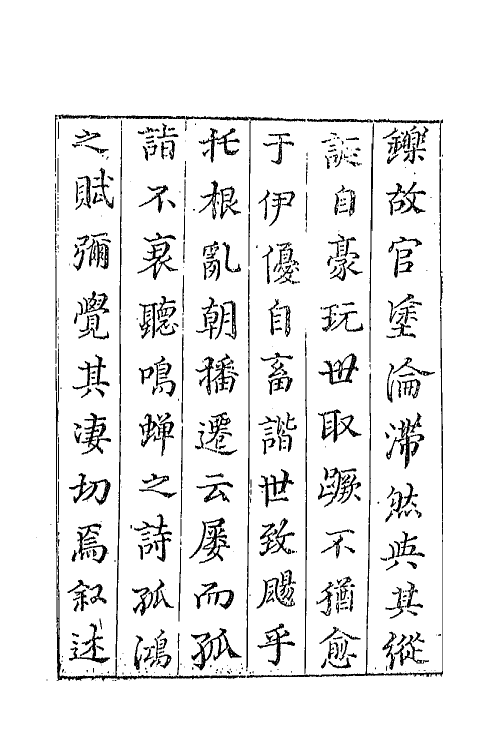 鑠故官塗淪滯然與其縱
誕自豪玩世取蹶不猶愈
于伊優自畜諧世致颺乎
托根亂朝播遷云屡而孤
詣不衰聽鳴蝉之詩孤鴻
之賦彌覺其凄切焉叙述